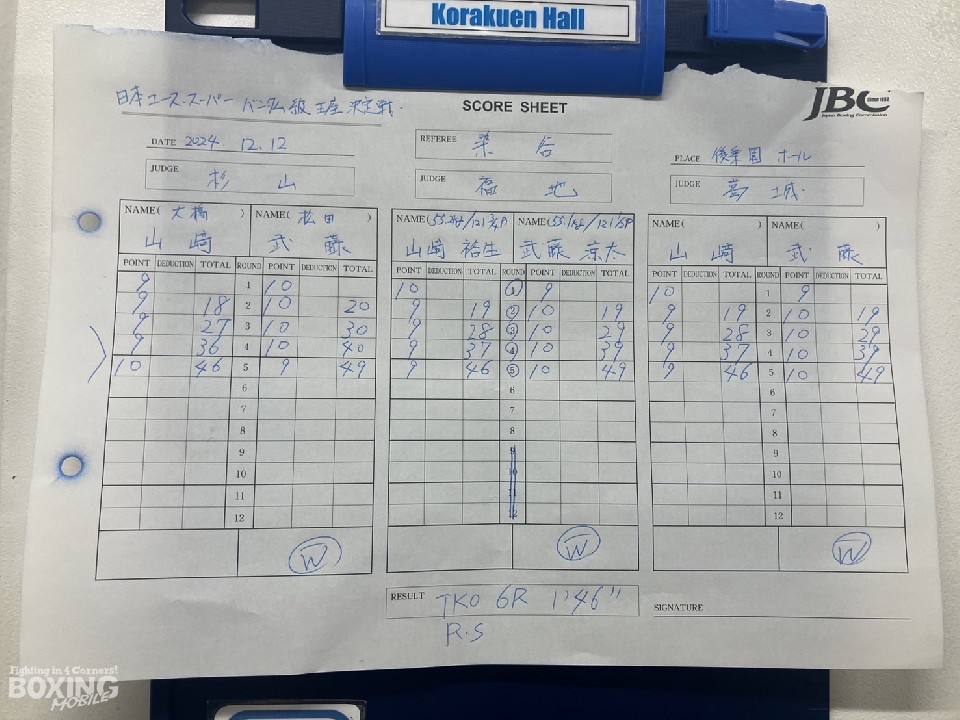 Korakuen Hall
日本ユース・スーパーバンタム級王座決定戦.
SCORE SHEET
JBC Since 1952
Japan Boxing Commission
DATE 2024. 12. 12
REFEREE 染谷
PLACE 後楽園ホール
JUDGE 杉山
JUDGE 福地
JUDGE 葛城
NAME( 大橋 ) NAME( 松田 )
山﨑 武藤
POINT DEDUCTION TOTAL ROUND POINT DEDUCTION TOTAL
9 1 10
9 18 2 10 20
9 27 3 10 30
9 36 4 10 40
10 46 5 9 49
6
7
8
9
10
11
12
W
NAME( NAME(
山﨑 裕生 武藤 涼太
POINT DEDUCTION TOTAL ROUND POINT DEDUCTION TOTAL
10 1 9
9 19 2 10 19
9 28 3 10 29
9 37 4 10 39
9 46 5 10 49
6
7
8
9
10
11
12
W
NAME( ) NAME( )
山﨑 武藤
POINT DEDUCTION TOTAL ROUND POINT DEDUCTION TOTAL
10 1 9
9 19 2 10 19
9 28 3 10 29
9 37 4 10 39
9 46 5 10 49
6
7
8
9
10
11
12
W
RESULT TKO 6R 1'46"
R.S
SIGNATURE
Fighting in 4 Corners!
BOXING
MOBILE